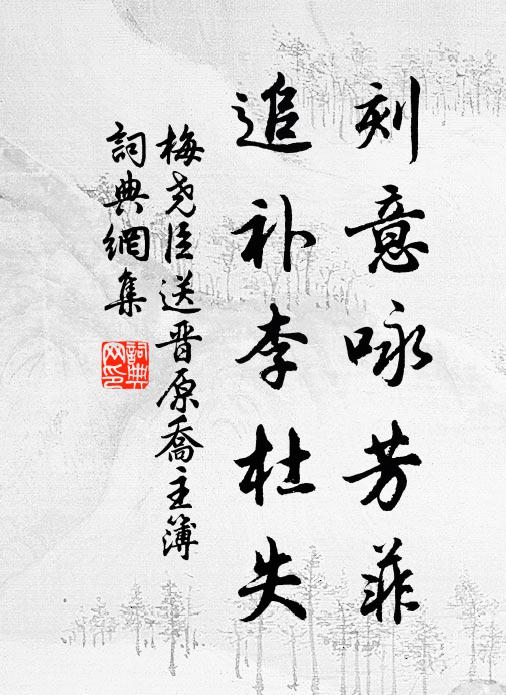 刻意咏芳菲
追补李杜失
梅尧臣送晋原喬主簿
詞典網集
詞典網印